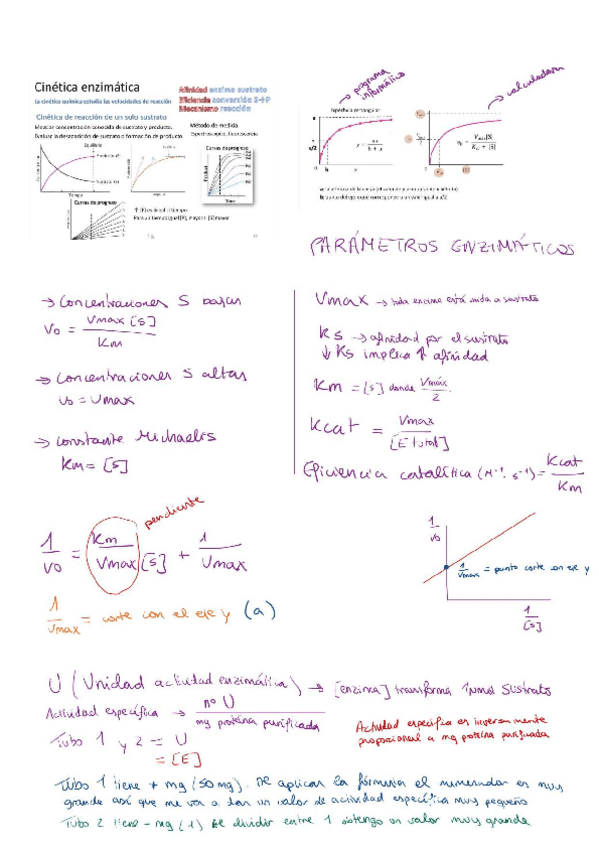 Cinética enzimática
La cinética química estudia las velocidades de reacción
Afinidad enzima sustrato
Eficiencia conversión S→P
Mecanismo reacción
Cinética de reacción de un solo sustrato
Método de medida
Curvas de progreso
Equilibrio
Tiempo
Curvas de progreso
→ programa informático
Hipérbola rectangular
→ calculadora
PARÁMETROS ENZIMÁTICOS
→ Concentraciones S bajas
Vo = Vmax [S] / Km
→ Concentraciones S altas
vo = Vmax
→ constante Michaelis
Km = [S]
Vmax → toda enzima está unida a sustrato
Ks → afinidad por el sustrato
↓ Ks implica ↑ afinidad
Km = [S] donde Vmáx / 2
Kcat = Vmax / [E total]
Eficiencia catalítica (M⁻¹. s⁻¹) = Kcat / Km
pendiente
1/vo = Km / Vmax [S] + 1 / Vmax
1/Vmax = corte con el eje y (a)
1/vo
1/Vmax = punto corte con eje y
1/[S]
U (Unidad actividad enzimática) → [enzima] transforma 1µmol Sustrato
Actividad específica → nº U / mg proteína purificada
Tubo 1 y 2 = U
= [E]
Actividad específica es inversamente
proporcional a mg proteína purificada
Tubo 1 tiene + mg (50mg). Al aplicar la fórmula el numerador es muy
grande así que me va a dar un valor de actividad específica muy pequeño
Tubo 2 tiene - mg (1) al dividir entre 1 obtengo un valor muy grande